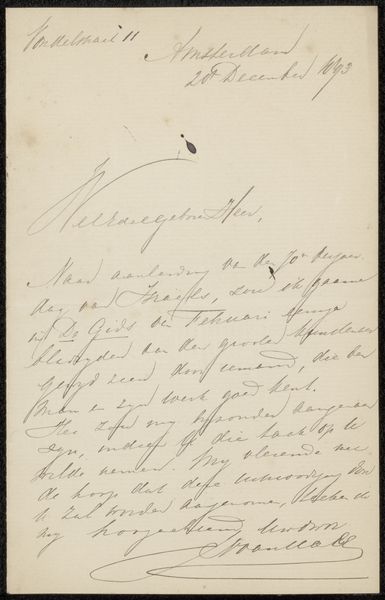 Vondelstraat 11
Amsterdam
20 December 1893
WelEdelgeboren Heer,
Naar aanleiding van den 70n verjaar
dag van Israëls, zou ik gaarne
in De Gids van Februari eenige
bladzyden aan den grooten kunstenaar
gewyd zien door iemand, die den
man en zyn werk goed kent.
Het zou my byzonder aangenaam
zyn, indien U die taak op U
wilde nemen. My vleiende met
de hoop dat deze uitnoodiging door
U zal worden aangenomen, teeken ik
my hoogachtend